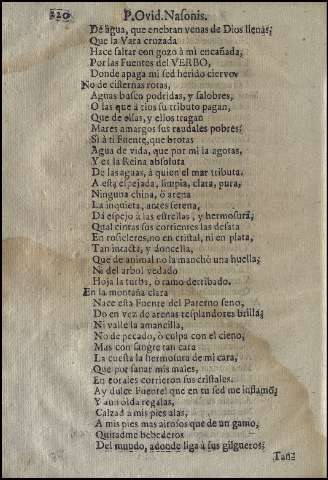 220 P. Ovid. Nasonis.
De agua, que enebran venas de Dios llenas;
Que la Vara cruzada
Hace saltar con gozo à mi encañada,
Por las Fuentes del VERBO,
Donde apaga mi sed herido ciervo.
No de cisternas rotas,
Aguas busco podridas, y salobres,
O las que à rios su tributo pagan,
Que de essas, y ellos tragan
Mares amargos sus raudales pobres;
Si à ti Fuente, que brotas
Agua de vida, que por mi la agotas,
Y eres la Reina absoluta
De las aguas, à quien el mar tributa.
A esta espejada, limpia, clara, pura,
Ninguna china, ò arena
La inquieta, antes serena,
Dà espejo à las estrellas, y hermosura;
Qual cintas sus corrientes las desata
En rosicleres, no en cristal, ni en plata,
Tan intacta, y doncella,
Que de animal no la manchò una huella;
Ni del arbol vedado
Hoja la turba, ò ramo derribado.
En la montaña clara
Nace esta Fuente del Paterno seno,
Do en vez de arenas resplandores brilla;
Ni valle la amancilla,
No de pecado, ò culpa con el cieno,
Mas con sangre tan cara
La cuesta la hermosura de mi cara,
Que por sanar mis males,
En corales corrieron sus cristales.
Ay dulce Fuente! que en su sed me inflamò;
Y aun olda regalas,
Calzad à mis pies alas,
A mis pies mas airosos que de un gamo,
Quitadme bebederos
Del mundo, adonde liga à sus gilgueros;
Tañ-